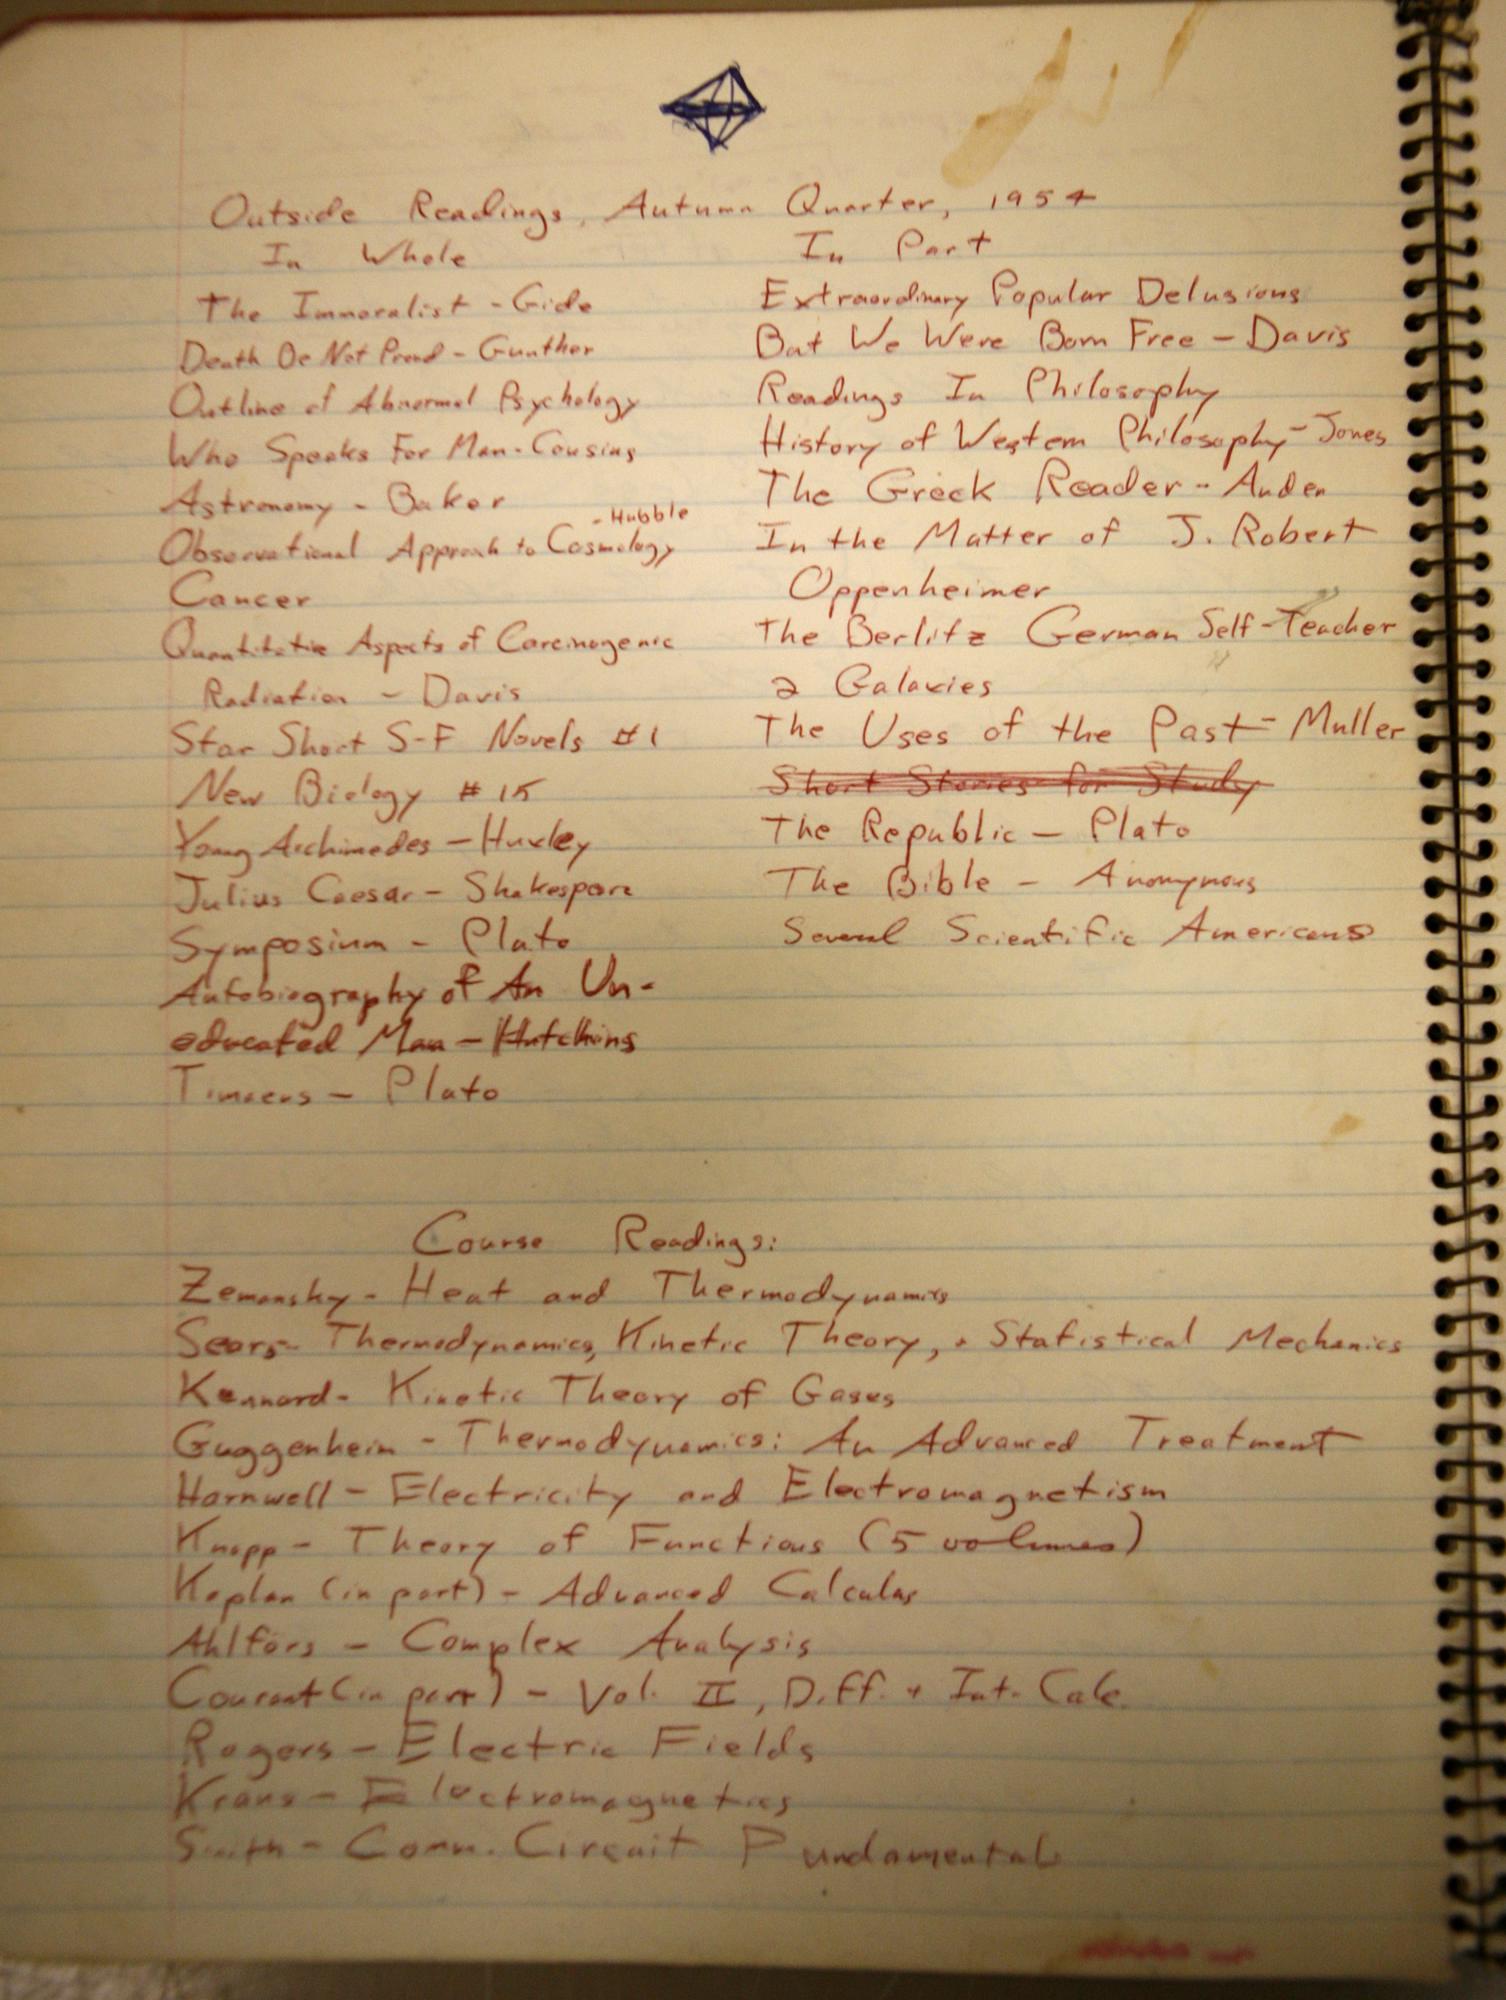 Outside Readings, Autumn Quarter, 1954
In Whole
The Immoralist - Gide
Death Be Not Proud - Gunther
Outline of Abnormal Psychology
Who Speaks For Man - Cousins
Astronomy - Baker
- Hubble
Observational Approach to Cosmology
Cancer
Quantitative Aspects of Carcinogenic
Radiation - Davis
Star Short S-F Novels #1
New Biology #15
Young Archimedes - Huxley
Julius Caesar - Shakespeare
Symposium - Plato
Autobiography of An Un-
educated Man - Hutchins
Timaeus - Plato
In Part
Extraordinary Popular Delusions
But We Were Born Free - Davis
Readings In Philosophy
History of Western Philosophy - Jones
The Greek Reader - Auden
In the Matter of J. Robert
Oppenheimer
The Berlitz German Self-Teacher
2 Galaxies
The Uses of the Past - Muller
Short Stories for Study
The Republic - Plato
The Bible - Anonymous
Several Scientific Americans
Course Readings:
Zemansky - Heat and Thermodynamics
Sears - Thermodynamics, Kinetic Theory, + Statistical Mechanics
Kennard - Kinetic Theory of Gases
Guggenheim - Thermodynamics: An Advanced Treatment
Harnwell - Electricity and Electromagnetism
Knopp - Theory of Functions (5 volumes)
Kaplan (in part) - Advanced Calculus
Ahlfors - Complex Analysis
Courant (in part) - Vol. II, Diff. + Int. Calc.
Rogers - Electric Fields
Kraus - Electromagnetics
Smith - Comm. Circuit Fundamentals